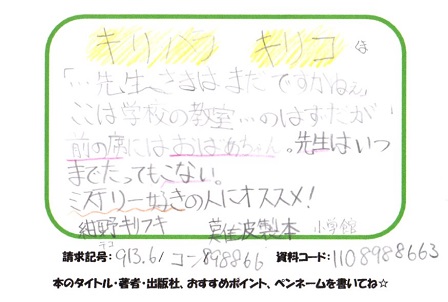 キリコ は
「…先生さまはまだですかねぇ」
ここは学校の教室…のはずだが
前の席にはおばあちゃん。先生はいつ
までたってもこない。
ミステリー好きの人にオススメ!
紺野キリフキ 小学館
請求記号: 913.6/ コン 898866 資料コード: 1108988663
本のタイトル・著者・出版社、おすすめポイント、ペンネームを書いてね☆